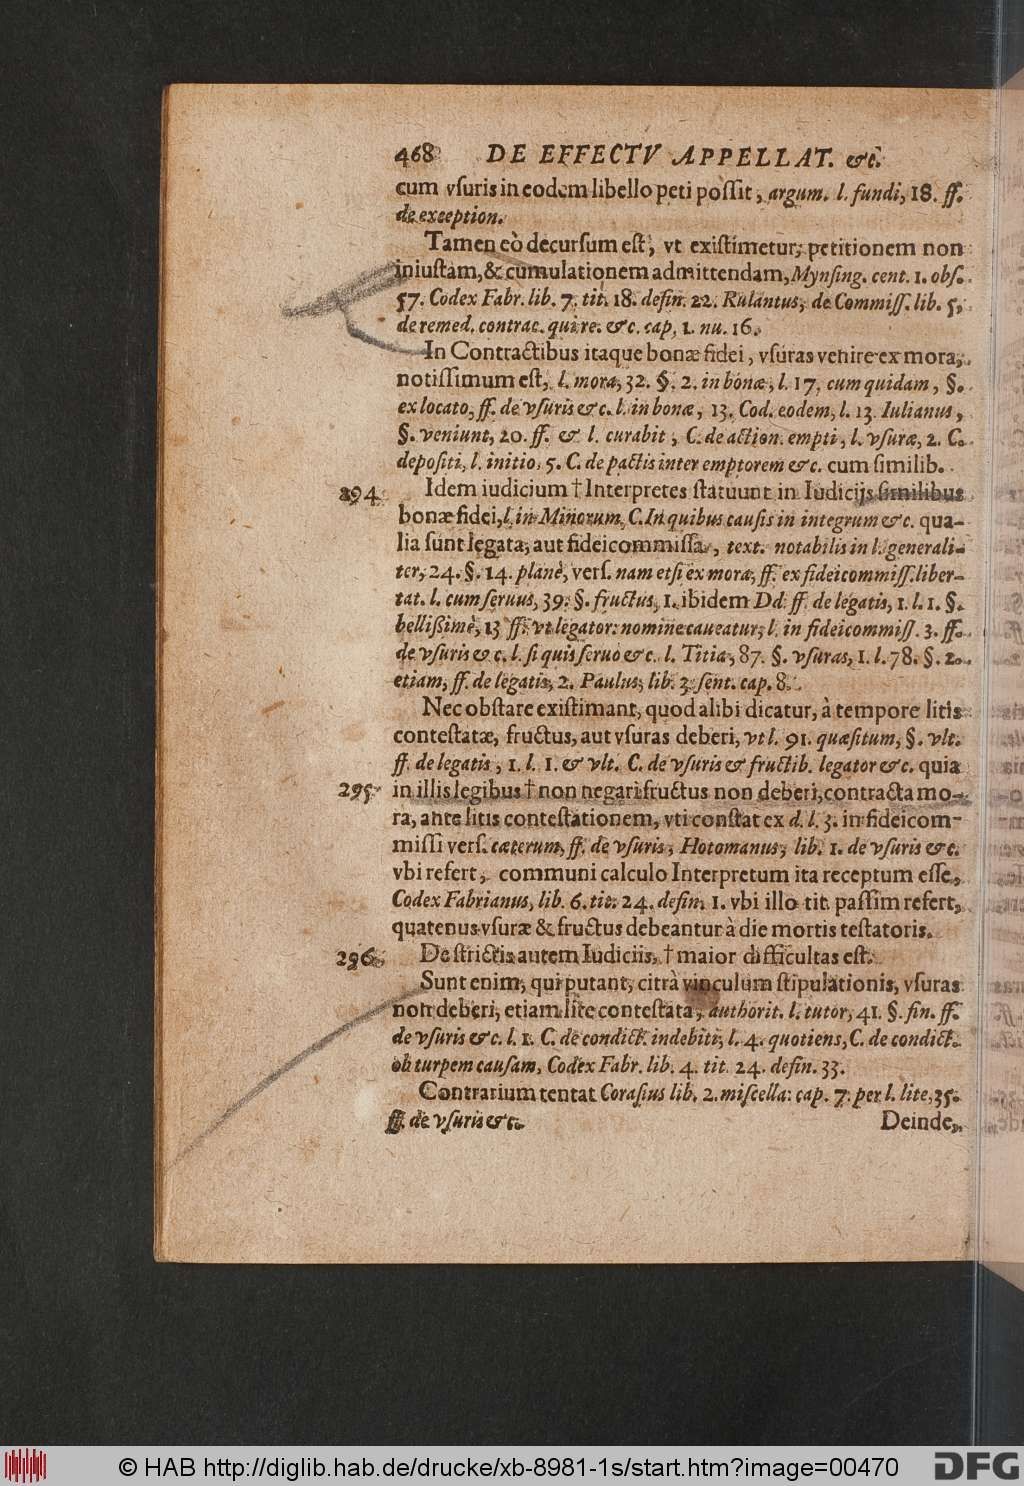 468 DE EFFECTV APPELLAT. &c.
cum vſuris in eodem libello peti poſſit, argum. l. fundi, 18. ff.
de exception.
Tamen eò decurſum eſt, vt exiſtimetur, petitionem non
iniuſtam, & cumulationem admittendam, Mynſing. cent. 1. obſ.
57. Codex Fabr. lib. 7. tit. 18. defin. 22. Rulantus, de Commiſſ. lib. 5,
de remed. contrac. qui re. &c. cap, 1. nu. 16.
In Contractibus itaque bonæ fidei, vſuras venire ex mora,
notiſſimum eſt, l. mora, 32. §. 2. in bonæ, l. 17. cum quidam, §.
ex locato, ff. de vſuris &c. l. in bonæ, 13. Cod. eodem, l. 13. Iulianus,
§. veniunt, 20. ff. & l. curabit, C. de action. empti, l. vſuræ, 2. C.
depoſiti, l. initio, 5. C. de pactis inter emptorem &c. cum ſimilib.
294 Idem iudicium † Interpretes ſtatuunt in Iudicijs ſimilibus
bonæ fidei, l. in Minorum, C. In quibus cauſis in integrum &c. qua-
lia ſunt legata, aut fideicommiſſa, text. notabilis in l. generali-
ter, 24. §. 14. planè, verſ. nam etſi ex mora, ff. ex fideicommiſſ. liber-
tat. l. cum ſeruus, 39. §. fructus, 1. ibidem Dd. ff. de legatis, 1. l. 1. §.
belliſſimè, 13 ff. vt legator. nomine caueatur, l. in fideicommiſſ. 3. ff.
de vſuris & c. l. ſi quis ſeruo &c. l. Titia, 87. §. vſuras, 1. l. 78. §. 2.
etiam, ff. de legatis, 2. Paulus, lib. 3. ſent. cap. 8.
Nec obſtare exiſtimant, quod alibi dicatur, à tempore litis
conteſtatæ, fructus, aut vſuras deberi, vt l. 91. quæſitum, §. vlt.
ff. de legatis, 1. l. 1. & vlt. C. de vſuris & fructib. legator &c. quia
295 in illis legibus † non negari fructus non deberi, contracta mo-
ra, ante litis conteſtationem, vti conſtat ex d. l. 3. in fideicom-
miſſi verſ. cæterum, ff. de vſuris, Hotomanus, lib. 1. de vſuris &c.
vbi refert, communi calculo Interpretum ita receptum eſſe,
Codex Fabrianus, lib. 6. tit. 24. defin. 1. vbi illo tit. paſſim refert,
quatenus vſuræ & fructus debeantur à die mortis teſtatoris.
296 De ſtrictis autem Iudiciis, † maior difficultas eſt.
Sunt enim, qui putant, citrà vinculum ſtipulationis, vſuras
non deberi, etiam lite conteſtata, authorit. l. tutor, 41. §. fin. ff.
de vſuris &c. l. 1. C. de condict. indebiti, l. 4. quotiens, C. de condict.
ob turpem cauſam, Codex Fabr. lib. 4. tit. 24. defin. 33.
Contrarium tentat Coraſius lib. 2. miſcella: cap. 7. per l. lite, 35.
ff. de vſuris &c. Deinde,
© HAB http://diglib.hab.de/drucke/xb-8981-1s/start.htm?image=00470 DFG